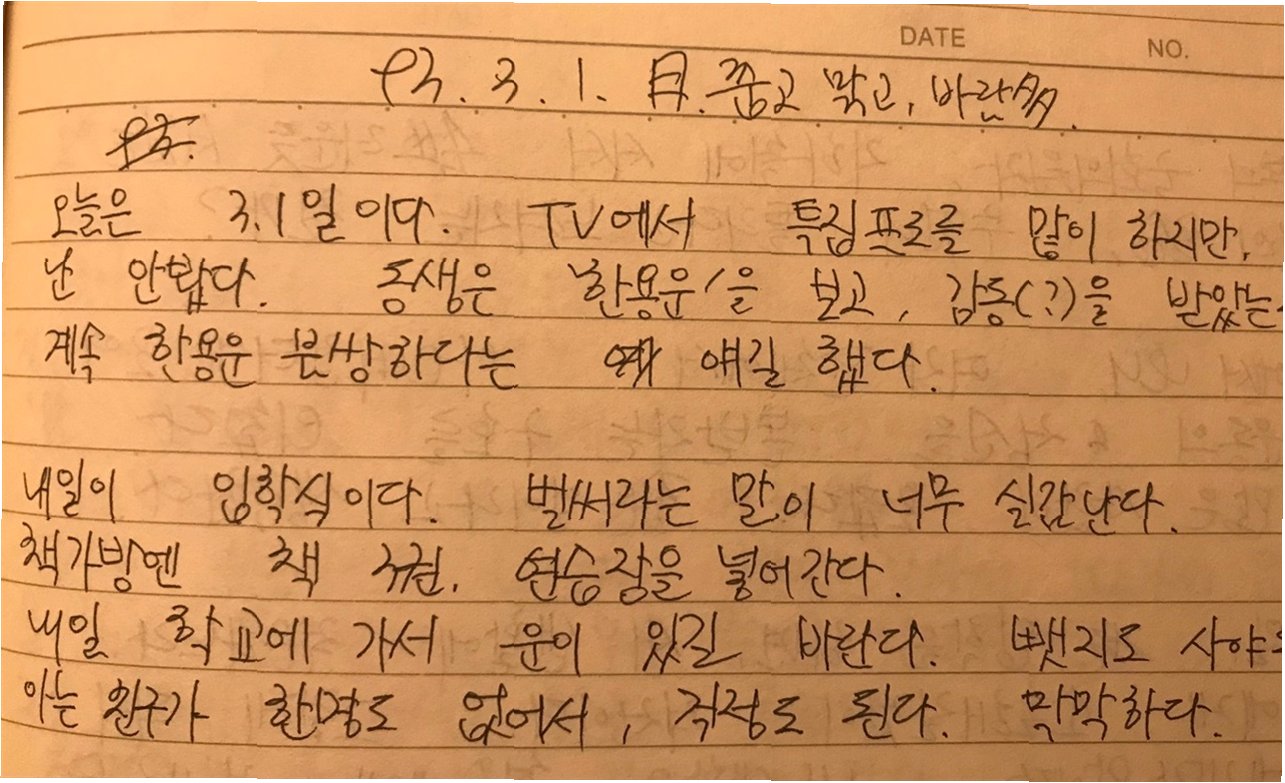 DATE NO.
92. 3. 1. 日. 춥고 맑고, 바람多.
오늘은 3.1일이다. TV에서 특집프로를 많이 하지만,
난 안봤다. 동생은 '한용운'을 보고, 감동(?)을 받았는
계속 한용운 불쌍하다는 얘길 했다.
내일이 입학식이다. 벌써라는 말이 너무 실감난다.
책가방엔 책 연습장을 넣어간다.
내일 학교에 가서 운이 있길 바란다. 뺏지도 사야
아는 친구가 한명도 없어서, 걱정도 된다. 막막하다.